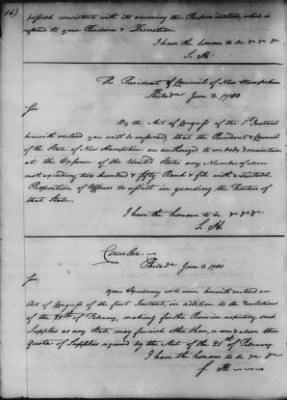 possible consistent with its answering the Purpose intended, which is
refered to your Prudence & Discretion
I have the honour to be &c &c &c
S. H.
The President & Council of New Hampshire
Philada June 3. 1780
Sir
By the Act of Congress of the 1st Instant
herewith enclosed you will be informed, that the President & Council
of the State of New Hampshire are authorized to
at the Expence of the United States any Number of Men
not exceeding two hundred & fifty Rank & file with a suitable
Proportion of Officers to assist in guarding the Frontiers of
that State.
I have the honour to be &c &c &c
S. H.
Circular
Philada June 3. 1780
Sir
Your Excellency will receive herewith enclosed an
Act of Congress of the first Instant, in addition to the Resolutions
of the 25th of February, making further Provision respecting such
Supplies as any State may furnish other than, or over & above their
Quota of Supplies required by the Act of the 25th of February
I have the honour to be &c &c
S. H.